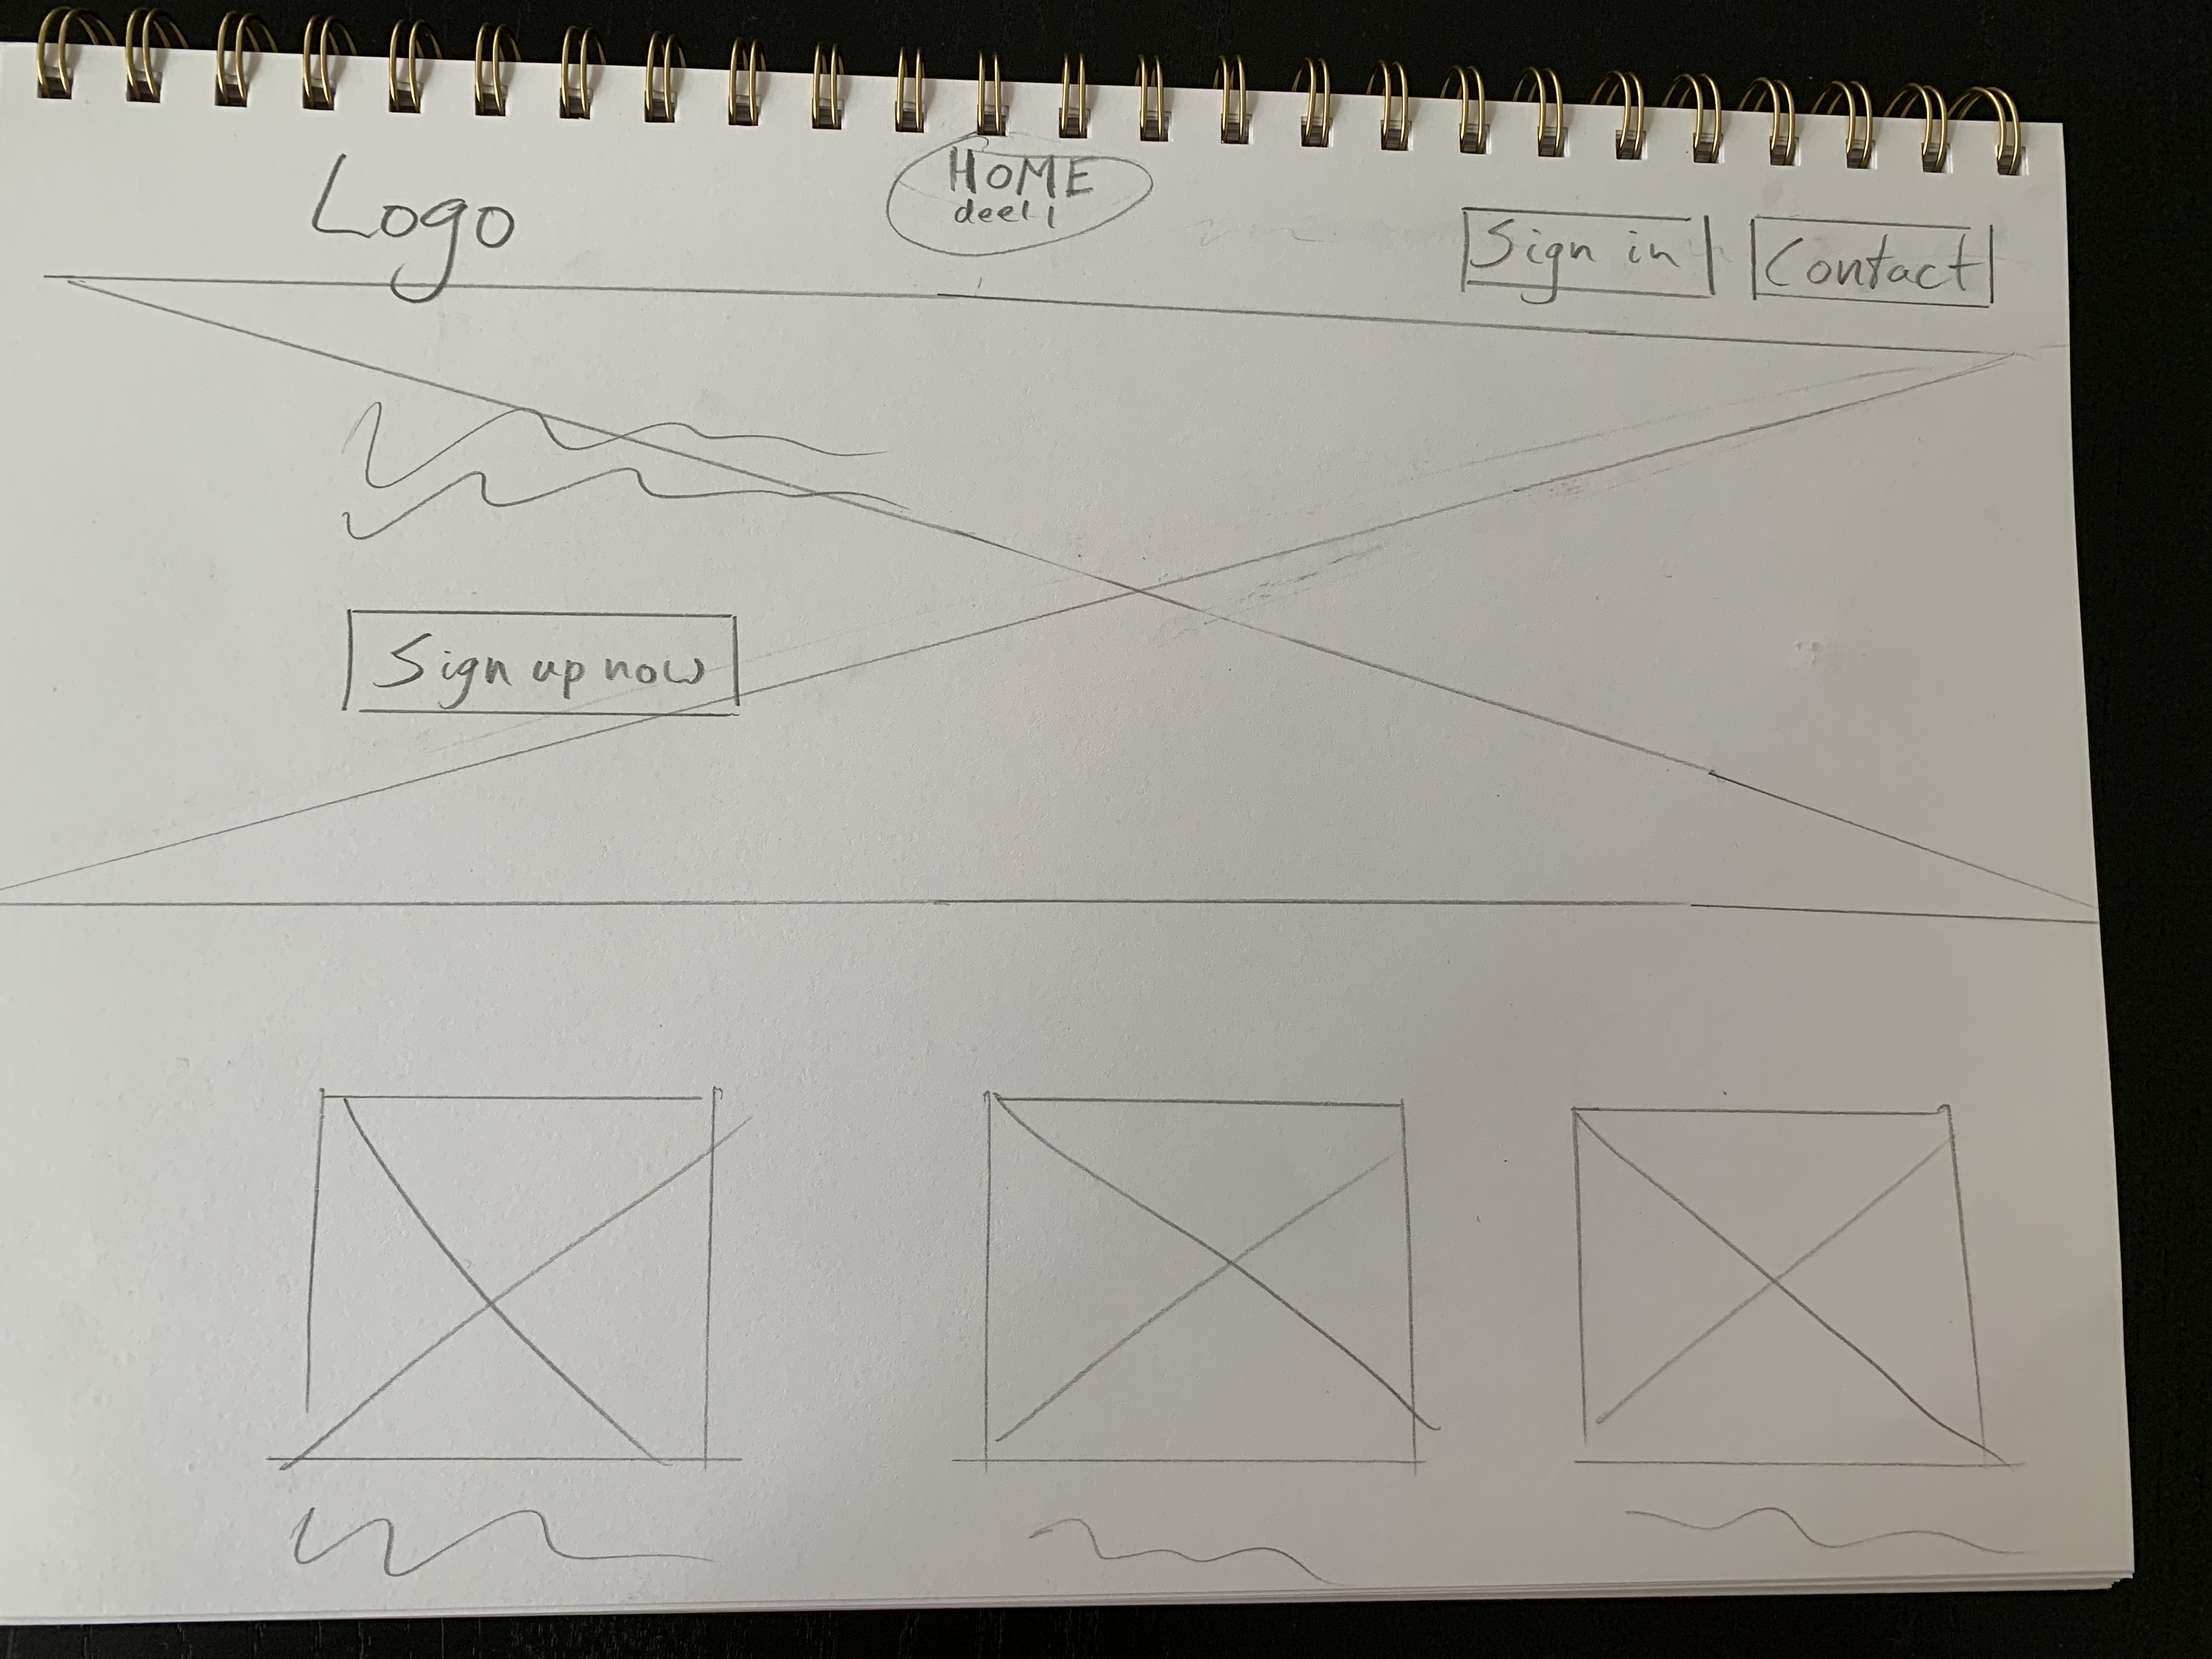 Logo
HOME
deel 1
Sign in
Contact
Sign up now